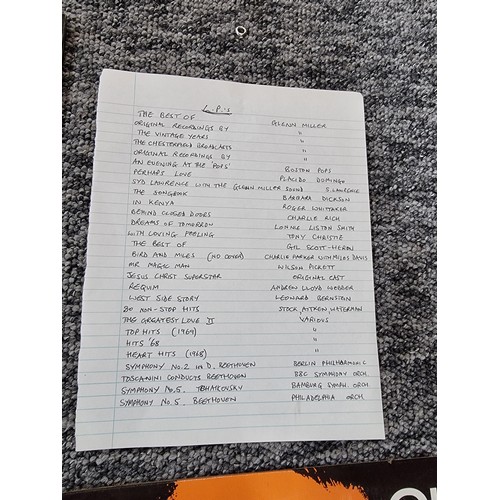 L.P.'s
THE BEST OF GLENN MILLER
ORIGINAL RECORDINGS BY "
THE VINTAGE YEARS "
THE CHESTERFIELD BROADCASTS "
ORIGINAL RECORDINGS BY "
AN EVENING AT THE 'POPS' BOSTON POPS
PERHAPS LOVE PLACIDO DOMINGO
SYD LAWRENCE WITH THE GLENN MILLER SOUND S. LAWRENCE
THE SONGBOOK BARBARA DICKSON
IN KENYA ROGER WHITTAKER
BEHIND CLOSED DOORS CHARLIE RICH
DREAMS OF TOMORROW LONNIE LISTON SMITH
WITH LOVING FEELING TONY CHRISTIE
THE BEST OF GIL SCOTT-HERON
BIRD AND MILES (NO COVER) CHARLIE PARKER WITH MILES DAVIS
MR MAGIC MAN WILSON PICKETT
JESUS CHRIST SUPERSTAR ORIGINAL CAST
REQUIM ANDREW LLOYD WEBBER
WEST SIDE STORY LEONARD BERNSTEIN
80 NON-STOP HITS STOCK, AITKEN, WATERMAN
THE GREATEST LOVE II VARIOUS
TOP HITS (1969) "
HITS '68 "
HEART HITS (1968) "
SYMPHONY No. 2 IN D. BEETHOVEN BERLIN PHILHARMONIC
TOSCANINI CONDUCTS BEETHOVEN BBC SYMPHONY ORCH.
SYMPHONY No. 5. TCHAIKOVSKY BAMBURG SYMPH. ORCH.
SYMPHONY No. 5. BEETHOVEN PHILADELPHIA ORCH.